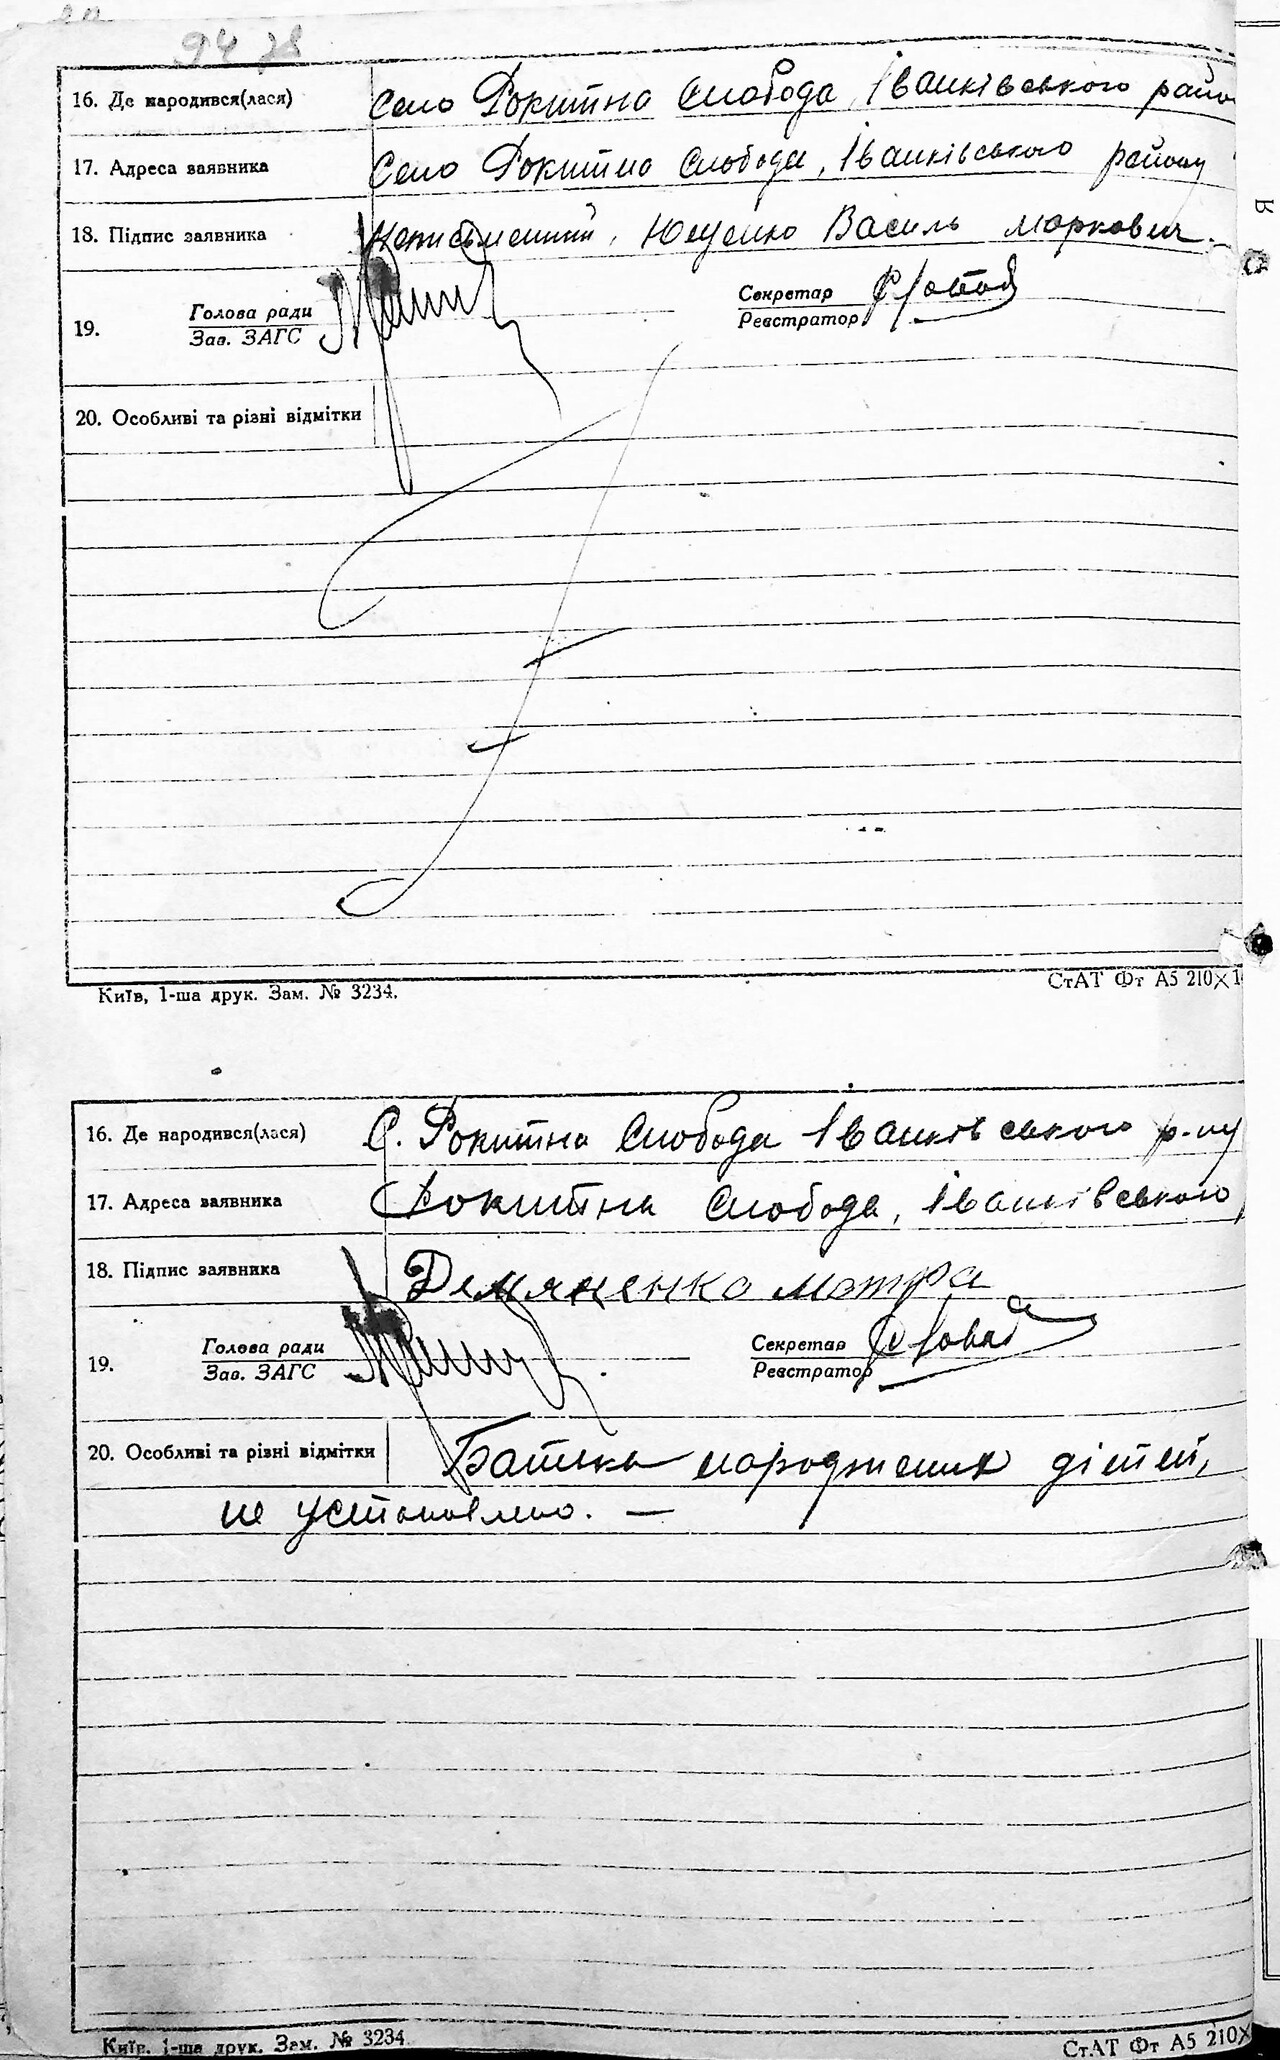 94 78
16. Де народився(лася) село Рокитна Слобода, Іванківського райо
17. Адреса заявника Село Рокитна Слобода, Іванківського району
18. Підпис заявника Неписьменний, Ющенко Василь Маркович.
19. Голова ради Секретар
Зав. ЗАГС Реєстратор
20. Особливі та різні відмітки
Київ, 1-ша друк. Зам. № 3234. СтАТ Фт А5 210×1
16. Де народився(лася) С. Рокитна Слобода Іванківського р-ну
17. Адреса заявника Рокитна Слобода, Іванківського
18. Підпис заявника Демяненко мотра
19. Голова ради Секретар
Зав. ЗАГС Реєстратор
20. Особливі та різні відмітки Батька народжених дітей,
не установлено. —
Київ. 1-ша друк. Зам. № 3234 СтАТ Фт А5 210×